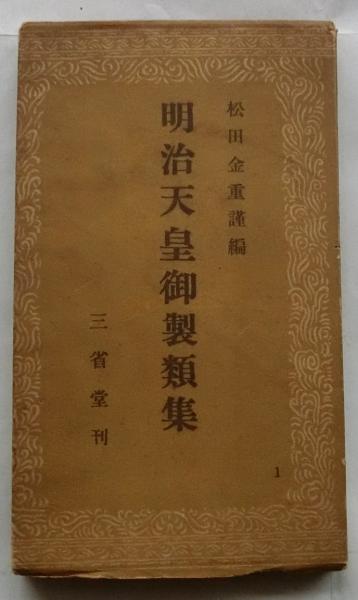 松田金重謹編
明治天皇御製類集
三省堂刊
1